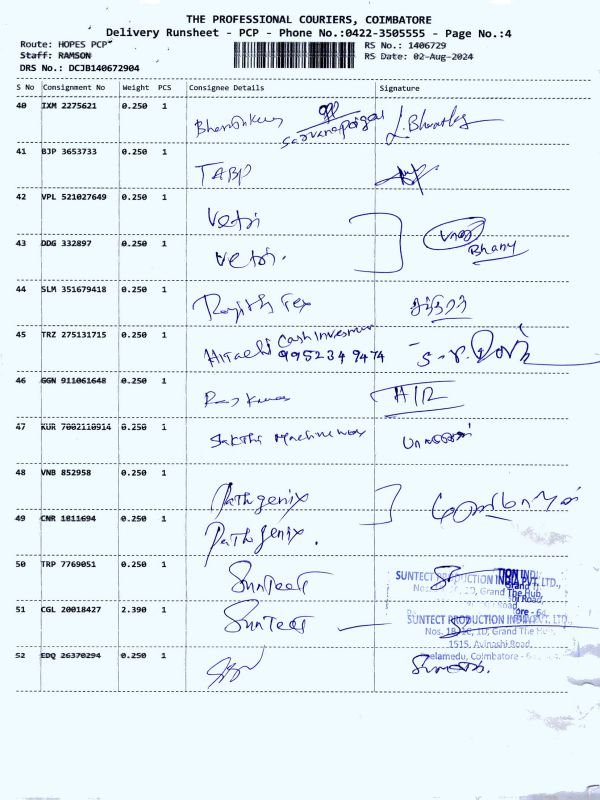 THE PROFESSIONAL COURIERS, COIMBATORE
Delivery Runsheet - PCP - Phone No.:0422-3505555 - Page No.:4
Route: HOPES PCP RS No.: 1406729
Staff: RAMSON RS Date: 02-Aug-2024
DRS No.: DCJB140672904
S No Consignment No Weight PCS Consignee Details Signature
40 IXM 2275621 0.250 1
41 BJP 3653733 0.250 1 TABP
42 VPL 521027649 0.250 1 Vetri
43 DDG 332897 0.250 1 Vetri. Bhany
44 SLM 351679418 0.250 1
45 TRZ 275131715 0.250 1 Hitachi Cash
9952349474
46 GGN 911061648 0.250 1 Raj Kumar
47 KUR 7002110914 0.250 1 Sakthi
48 VNB 852958 0.250 1 Pathgenix
49 CNR 1811694 0.250 1 Pathgenix.
50 TRP 7769051 0.250 1 Suntect
SUNTECT PRODUCTION INDIA PVT. LTD.,
51 CGL 20018427 2.390 1 Suntect
SUNTECT PRODUCTION INDIA PVT. LTD.,
Nos. 1B, 1C, 1D, Grand The Hub,
1515, Avinashi Road,
Peelamedu, Coimbatore -
52 EDQ 26370294 0.250 1